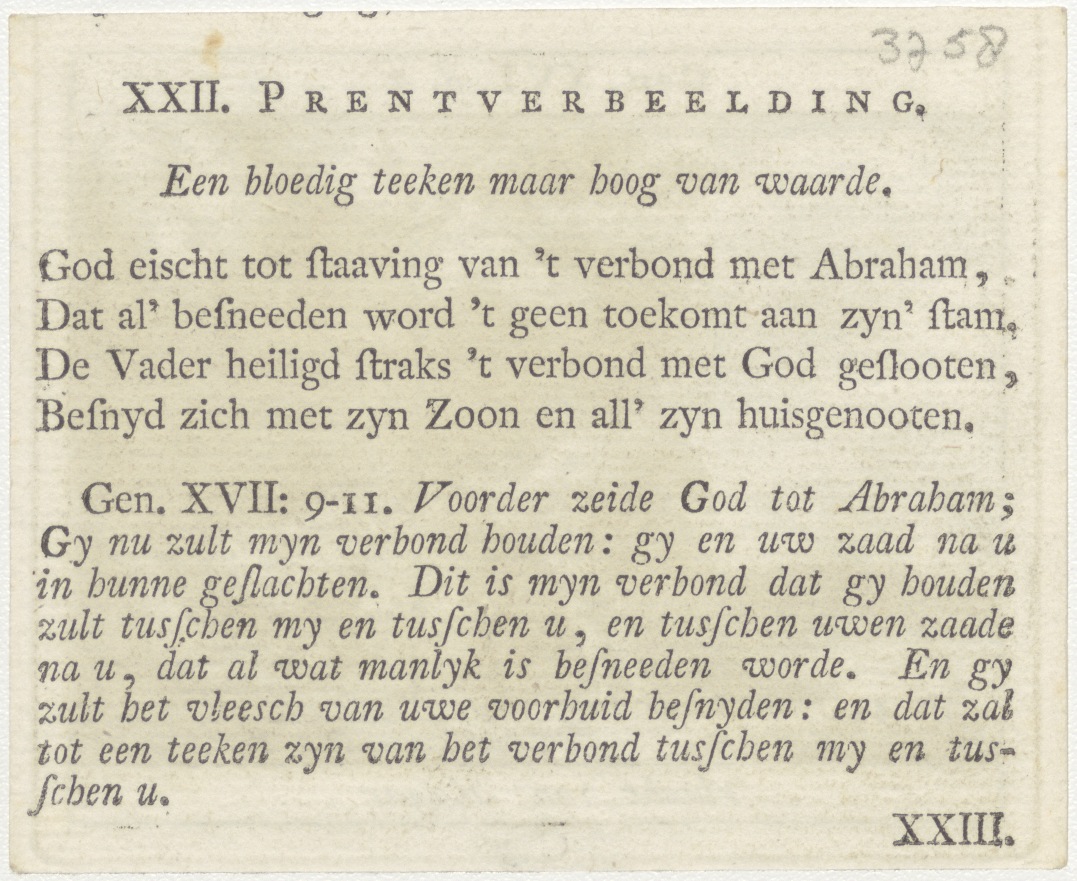 3758
XXII. PRENTVERBEELDING.
Een bloedig teeken maar hoog van waarde.
God eischt tot ſtaaving van 't verbond met Abraham,
Dat al' beſneeden word 't geen toekomt aan zyn' ſtam.
De Vader heiligd ſtraks 't verbond met God geſlooten,
Beſnyd zich met zyn Zoon en all' zyn huisgenooten.
Gen. XVII: 9-11. Voorder zeide God tot Abraham;
Gy nu zult myn verbond houden: gy en uw zaad na u
in hunne geſlachten. Dit is myn verbond dat gy houden
zult tusſchen my en tusſchen u, en tusſchen uwen zaade
na u, dat al wat manlyk is beſneeden worde. En gy
zult het vleesch van uwe voorhuid beſnyden: en dat zal
tot een teeken zyn van het verbond tusſchen my en tus-
ſchen u.
XXIII.